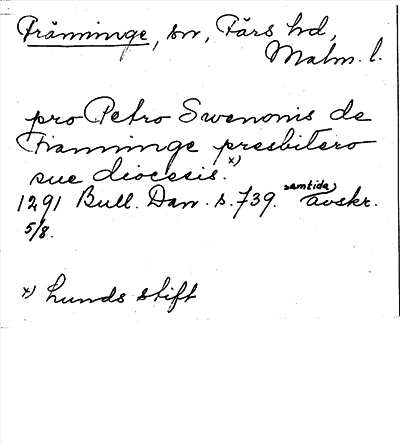 Främminge, sn, Färs hd,
Malm. l.
pro Petro Swenonis de
Framminge presbitero
sue diocesis. x)
1291 Bull. Dan. s. 739. samtida avskr.
5/8.
x) Lunds stift